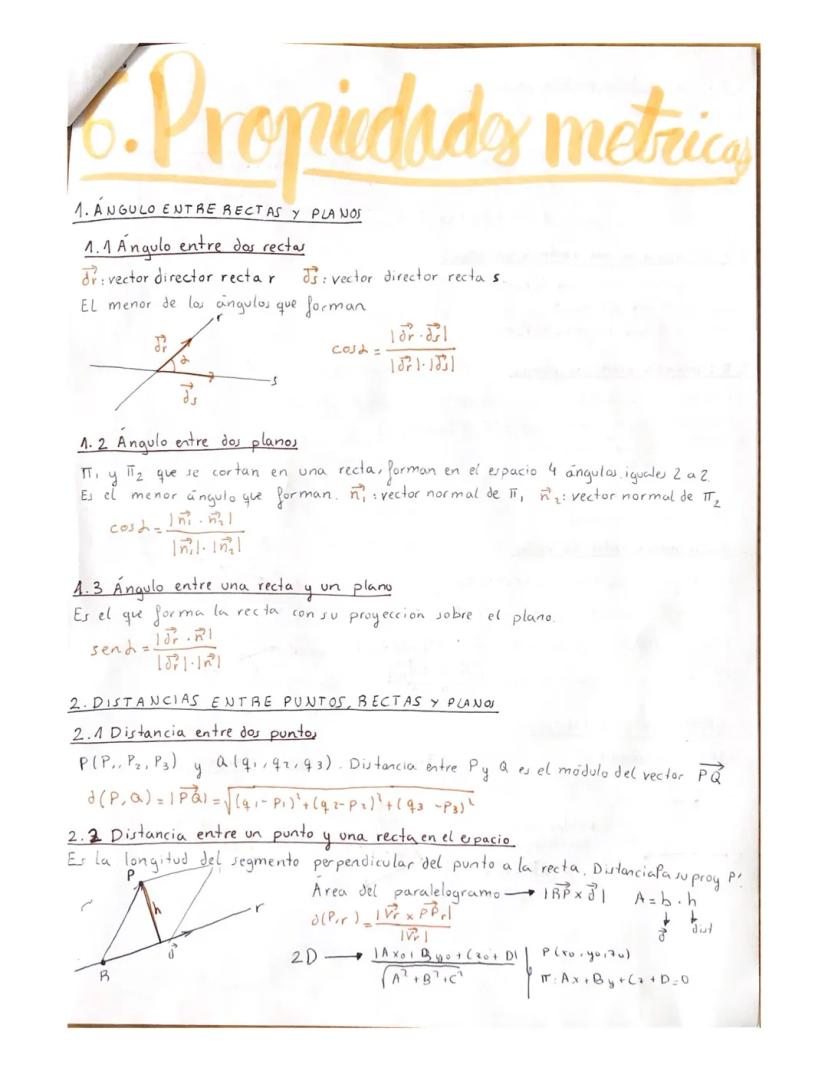 6. Propiedades metricas
1. ÁNGULO ENTRE RECTAS Y PLANOS
1.1 Ángulo entre dos rectas
d⃗r: vector director recta r d⃗s: vector director recta s.
EL menor de los ángulos que forman
r
d⃗r
α
s
d⃗s
cosα = |d⃗r · d⃗s| / |d⃗r| · |d⃗s|
1.2 Ángulo entre dos planos
π1 y π2 que se cortan en una recta, forman en el espacio 4 ángulos, iguales 2 a 2.
Es el menor ángulo que forman. n⃗1: vector normal de π1 n⃗2: vector normal de π2
cosα = |n⃗1 · n⃗2| / |n⃗1| · |n⃗2|
1.3 Ángulo entre una recta y un plano
Es el que forma la recta con su proyección sobre el plano.
senα = |d⃗r · n⃗| / |d⃗r| · |n⃗|
2. DISTANCIAS ENTRE PUNTOS, RECTAS Y PLANOS
2.1 Distancia entre dos puntos
P(P1, P2, P3) y Q(q1, q2, q3). Distancia entre P y Q es el módulo del vector PQ⃗
d(P,Q) = |PQ⃗| = √(q1 - P1)² + (q2 - P2)² + (q3 - P3)²
2.2 Distancia entre un punto y una recta en el espacio
Es la longitud del segmento perpendicular del punto a la recta. Distancia P a su proy P'.
P
h
r
d⃗
R
Área del paralelogramo → |RP⃗ x d⃗| A = b · h
d⃗ dist
d(P,r) = |V⃗r x PP⃗r| / |V⃗r|
2D → |Ax0 + By0 + Cz0 + D| / √A² + B² + C² P(x0, y0, z0)
π: Ax + By + Cz + D = 0